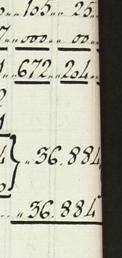 105.. 25
7..000.. 00
672.. 204
"36.884
"36.884